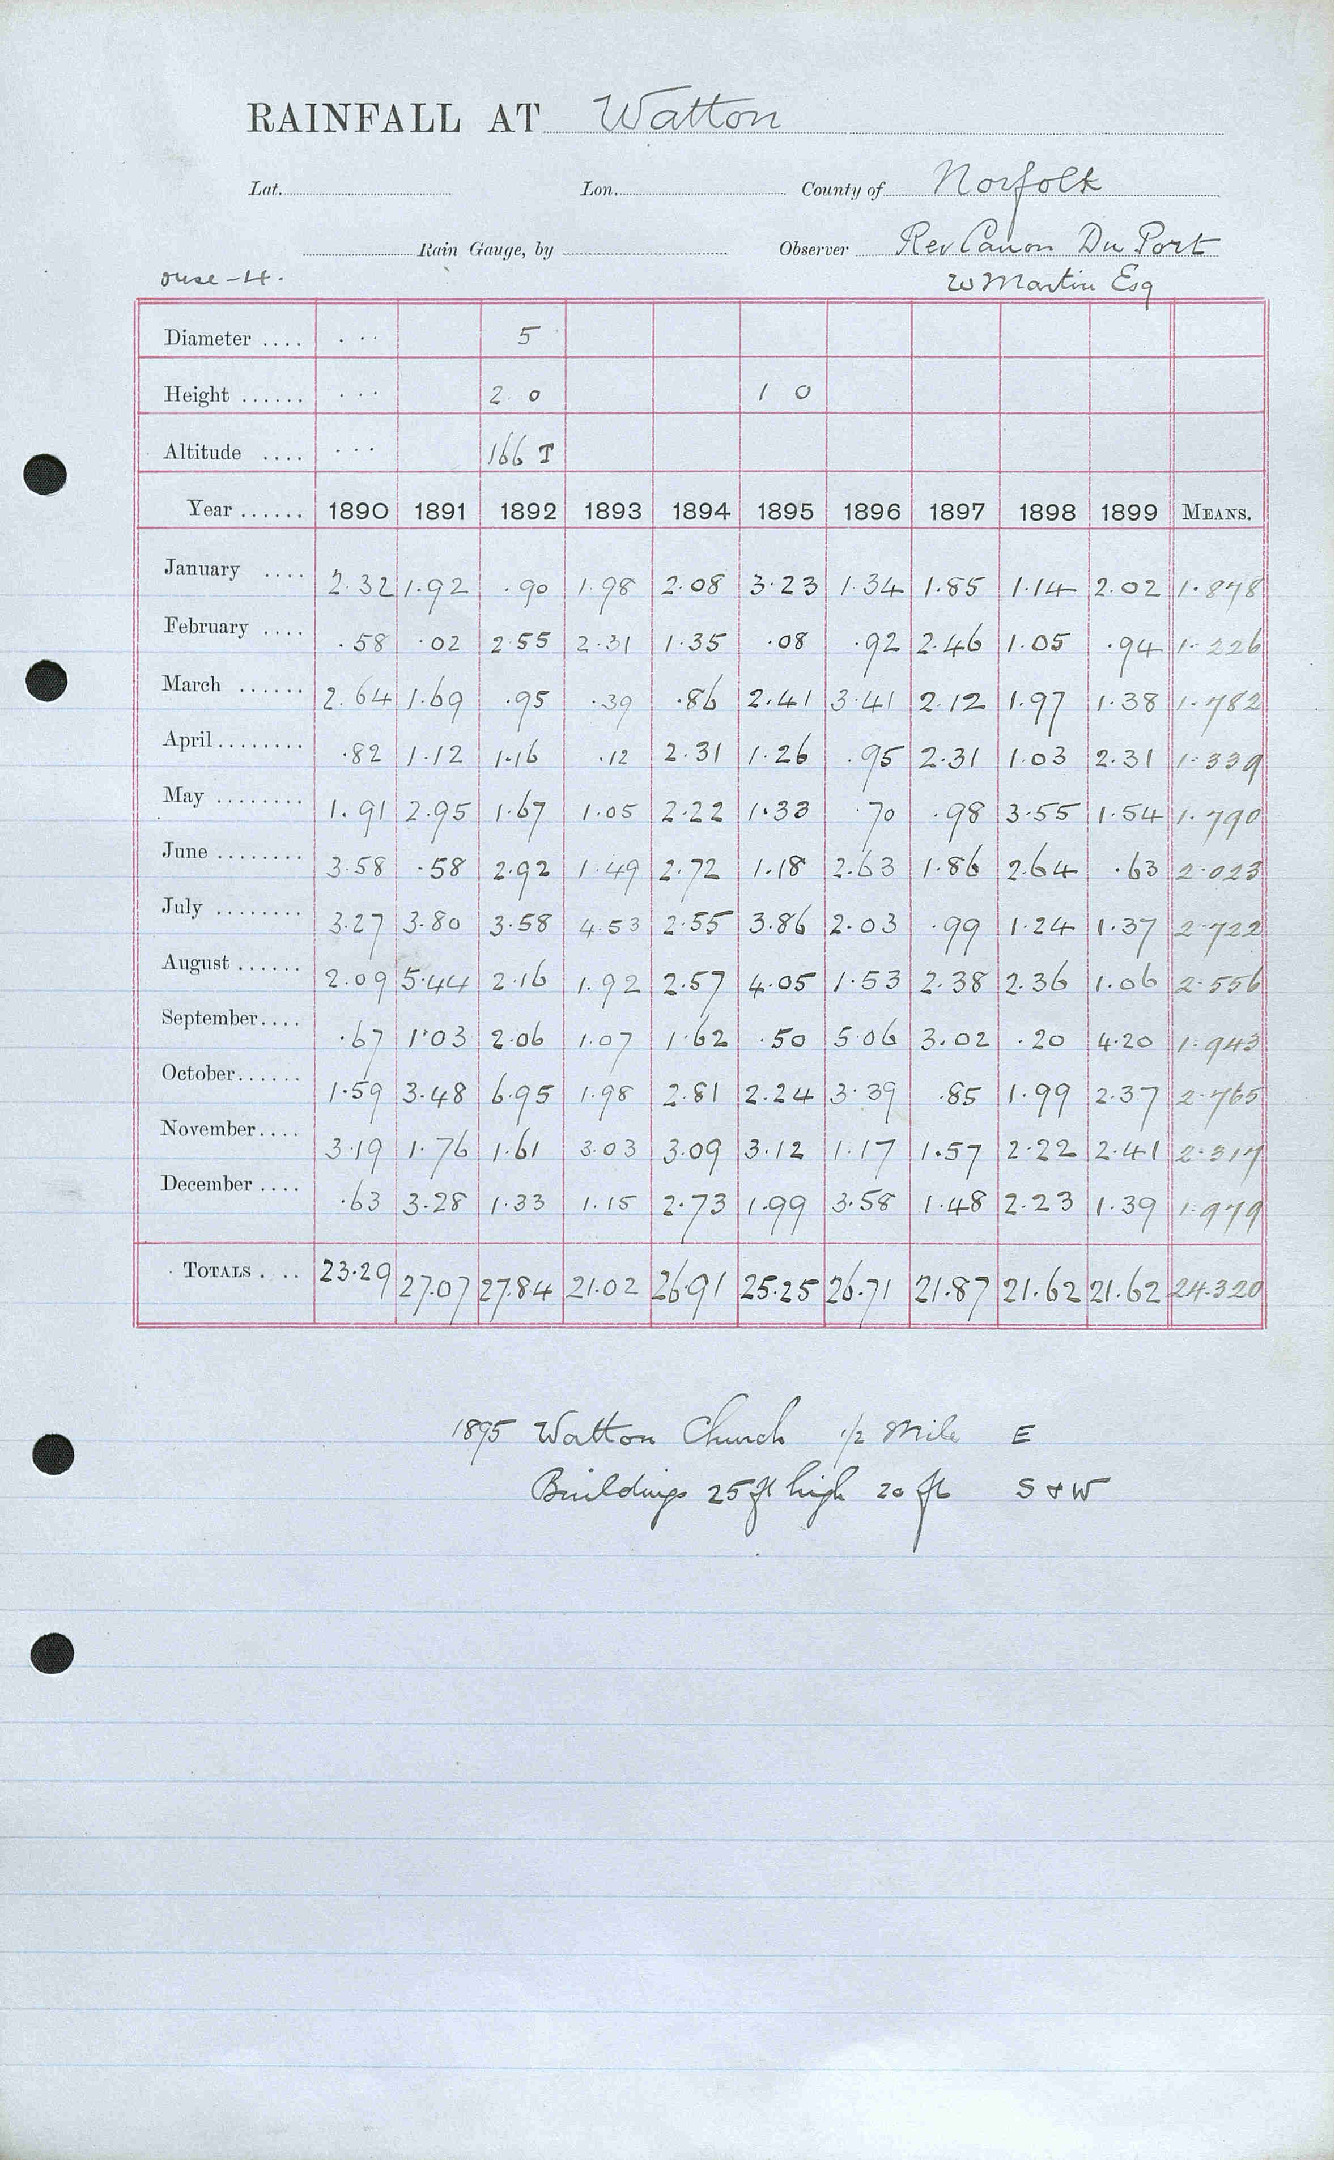 RAINFALL AT Watton
Lat. Lon. County of Norfolk
Rain Gauge, by Observer Rev Canon Du Port
Ouse-H. W Martin Esq
Diameter .... ... 5
Height ...... ... 2 0 1 0
Altitude .... ... 166 T
Year ...... 1890 1891 1892 1893 1894 1895 1896 1897 1898 1899 MEANS.
January .... 2.32 1.92 .90 1.98 2.08 3.23 1.34 1.85 1.14 2.02 1.878
February .... .58 .02 2.55 2.31 1.35 .08 .92 2.46 1.05 .94 1.226
March ...... 2.64 1.69 .95 .39 .86 2.41 3.41 2.12 1.97 1.38 1.782
April ........ .82 1.12 1.16 .12 2.31 1.26 .95 2.31 1.03 2.31 1.339
May ........ 1.91 2.95 1.67 1.05 2.22 1.33 .70 .98 3.55 1.54 1.790
June ........ 3.58 .58 2.92 1.49 2.72 1.18 2.63 1.86 2.64 .63 2.023
July ........ 3.27 3.80 3.58 4.53 2.55 3.86 2.03 .99 1.24 1.37 2.722
August ...... 2.09 5.44 2.16 1.92 2.57 4.05 1.53 2.38 2.36 1.06 2.556
September.... .67 1.03 2.06 1.07 1.62 .50 5.06 3.02 .20 4.20 1.943
October...... 1.59 3.48 6.95 1.98 2.81 2.24 3.39 .85 1.99 2.37 2.765
November.... 3.19 1.76 1.61 3.03 3.09 3.12 1.17 1.57 2.22 2.41 2.317
December .... .63 3.28 1.33 1.15 2.73 1.99 3.58 1.48 2.23 1.39 1.979
TOTALS .... 23.29 27.07 27.84 21.02 26.91 25.25 26.71 21.87 21.62 21.62 24.320
1895 Watton Church 1/2 Mile E
Buildings 25 ft high 20 ft S & W